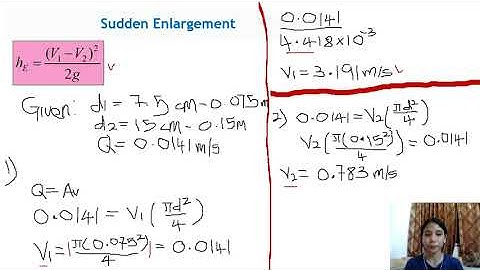 Sudden Enlargement
h_E = (V₁ − V₂)² / 2g
Given: d1 = 7.5 cm - 0.075m
d2 = 15 cm - 0.15m
Q = 0.0141 m/s
1)
Q = Av
0.0141 = V1 (πd²/4)
V1 = |π(0.075²)/4| = 0.0141
0.0141 / 4.418×10⁻³
V1 = 3.191 m/s
2) 0.0141 = V2 (πd²/4)
V2 (π(0.15²)/4) = 0.0141
V2 = 0.783 m/s